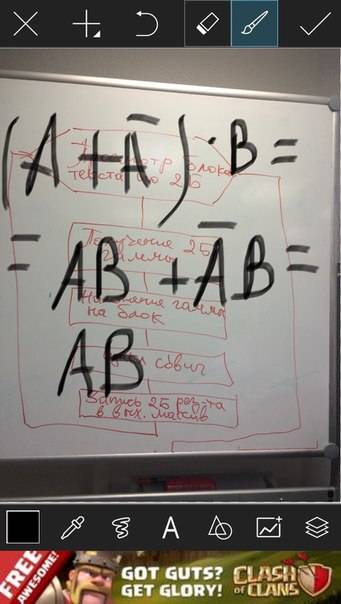 (A + Ā) · B =
= AB + ĀB =
AB
текста по 25
Получение 25
гаммы
Наложение гаммы
на блок
сдвиг
Запись 25 рез-та
в вых. массив
A
FREE
AWESOME!
GOT GUTS?
GET GLORY!
CLASH
OF CLANS